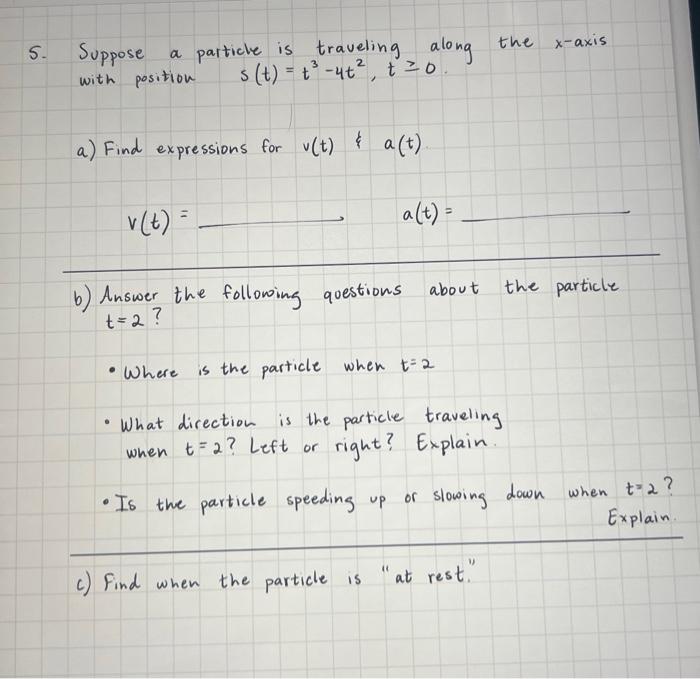 5. Suppose a particle is traveling along the x-axis
with position s(t) = t³ -4t², t ≥ 0.
a) Find expressions for v(t) & a(t).
v(t) = ________ a(t) = ________
b) Answer the following questions about the particle
t=2?
• Where is the particle when t=2
• What direction is the particle traveling
when t=2? Left or right? Explain.
• Is the particle speeding up or slowing down when t=2?
Explain.
c) Find when the particle is "at rest."